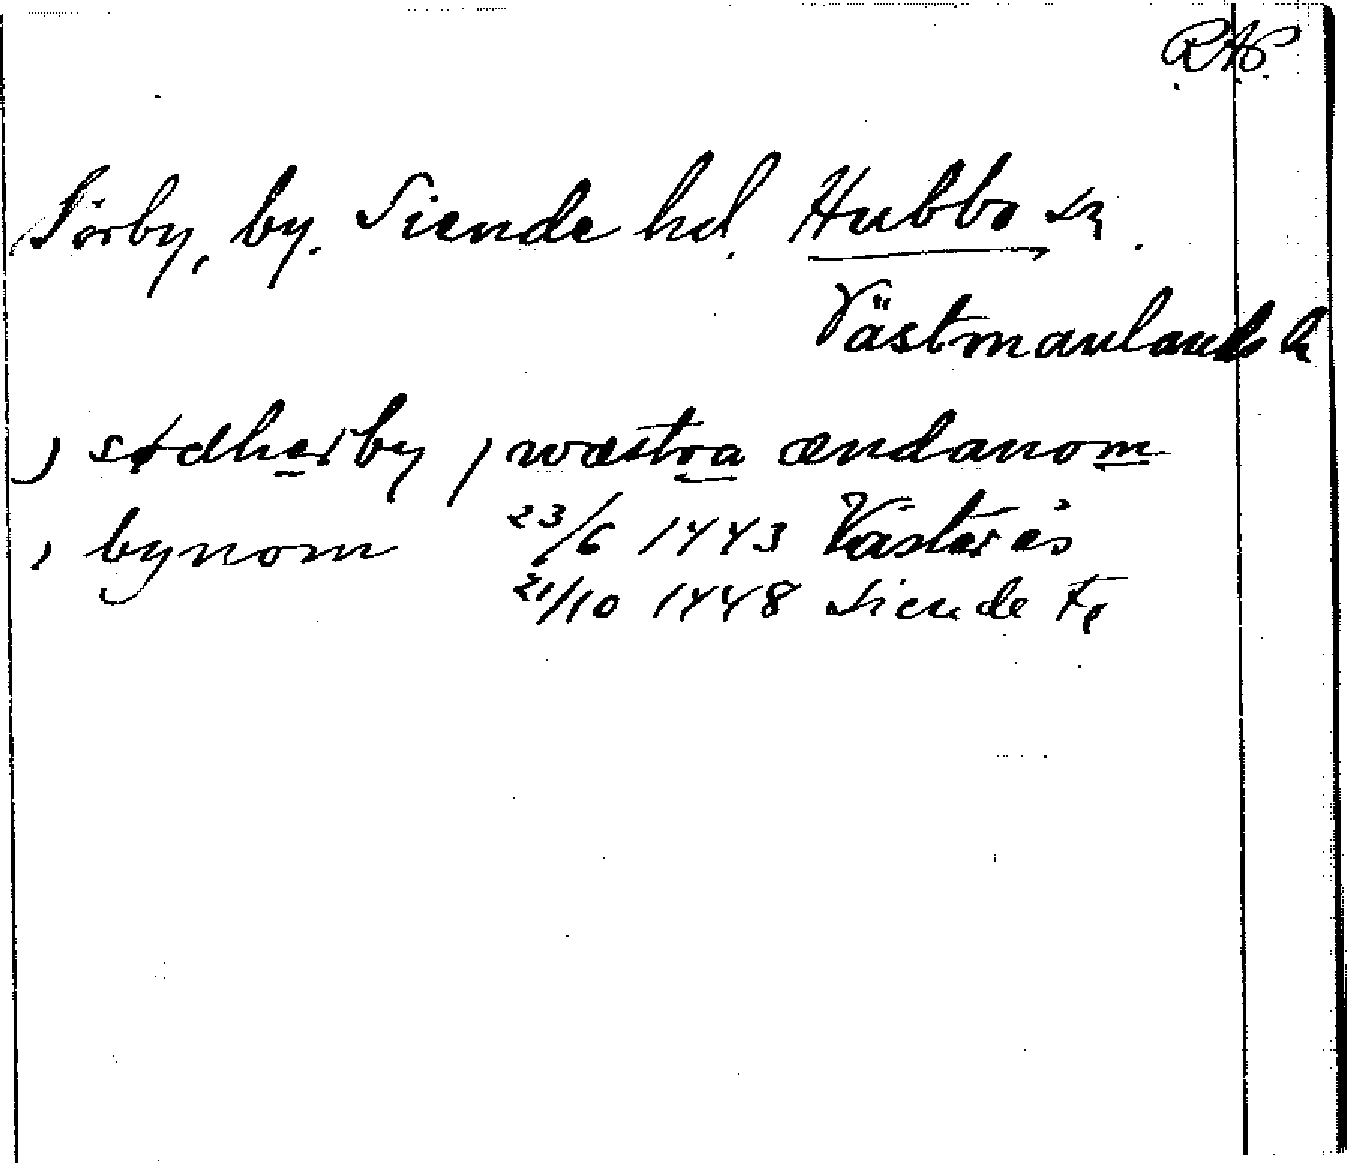 RAP.
Sörby, by. Siende hd. Hubbo sn.
Västmanlands ln
j sødherby j wæstra ændanom
j bynom 23/6 1443 Västerås
21/10 1448 Siende Tg